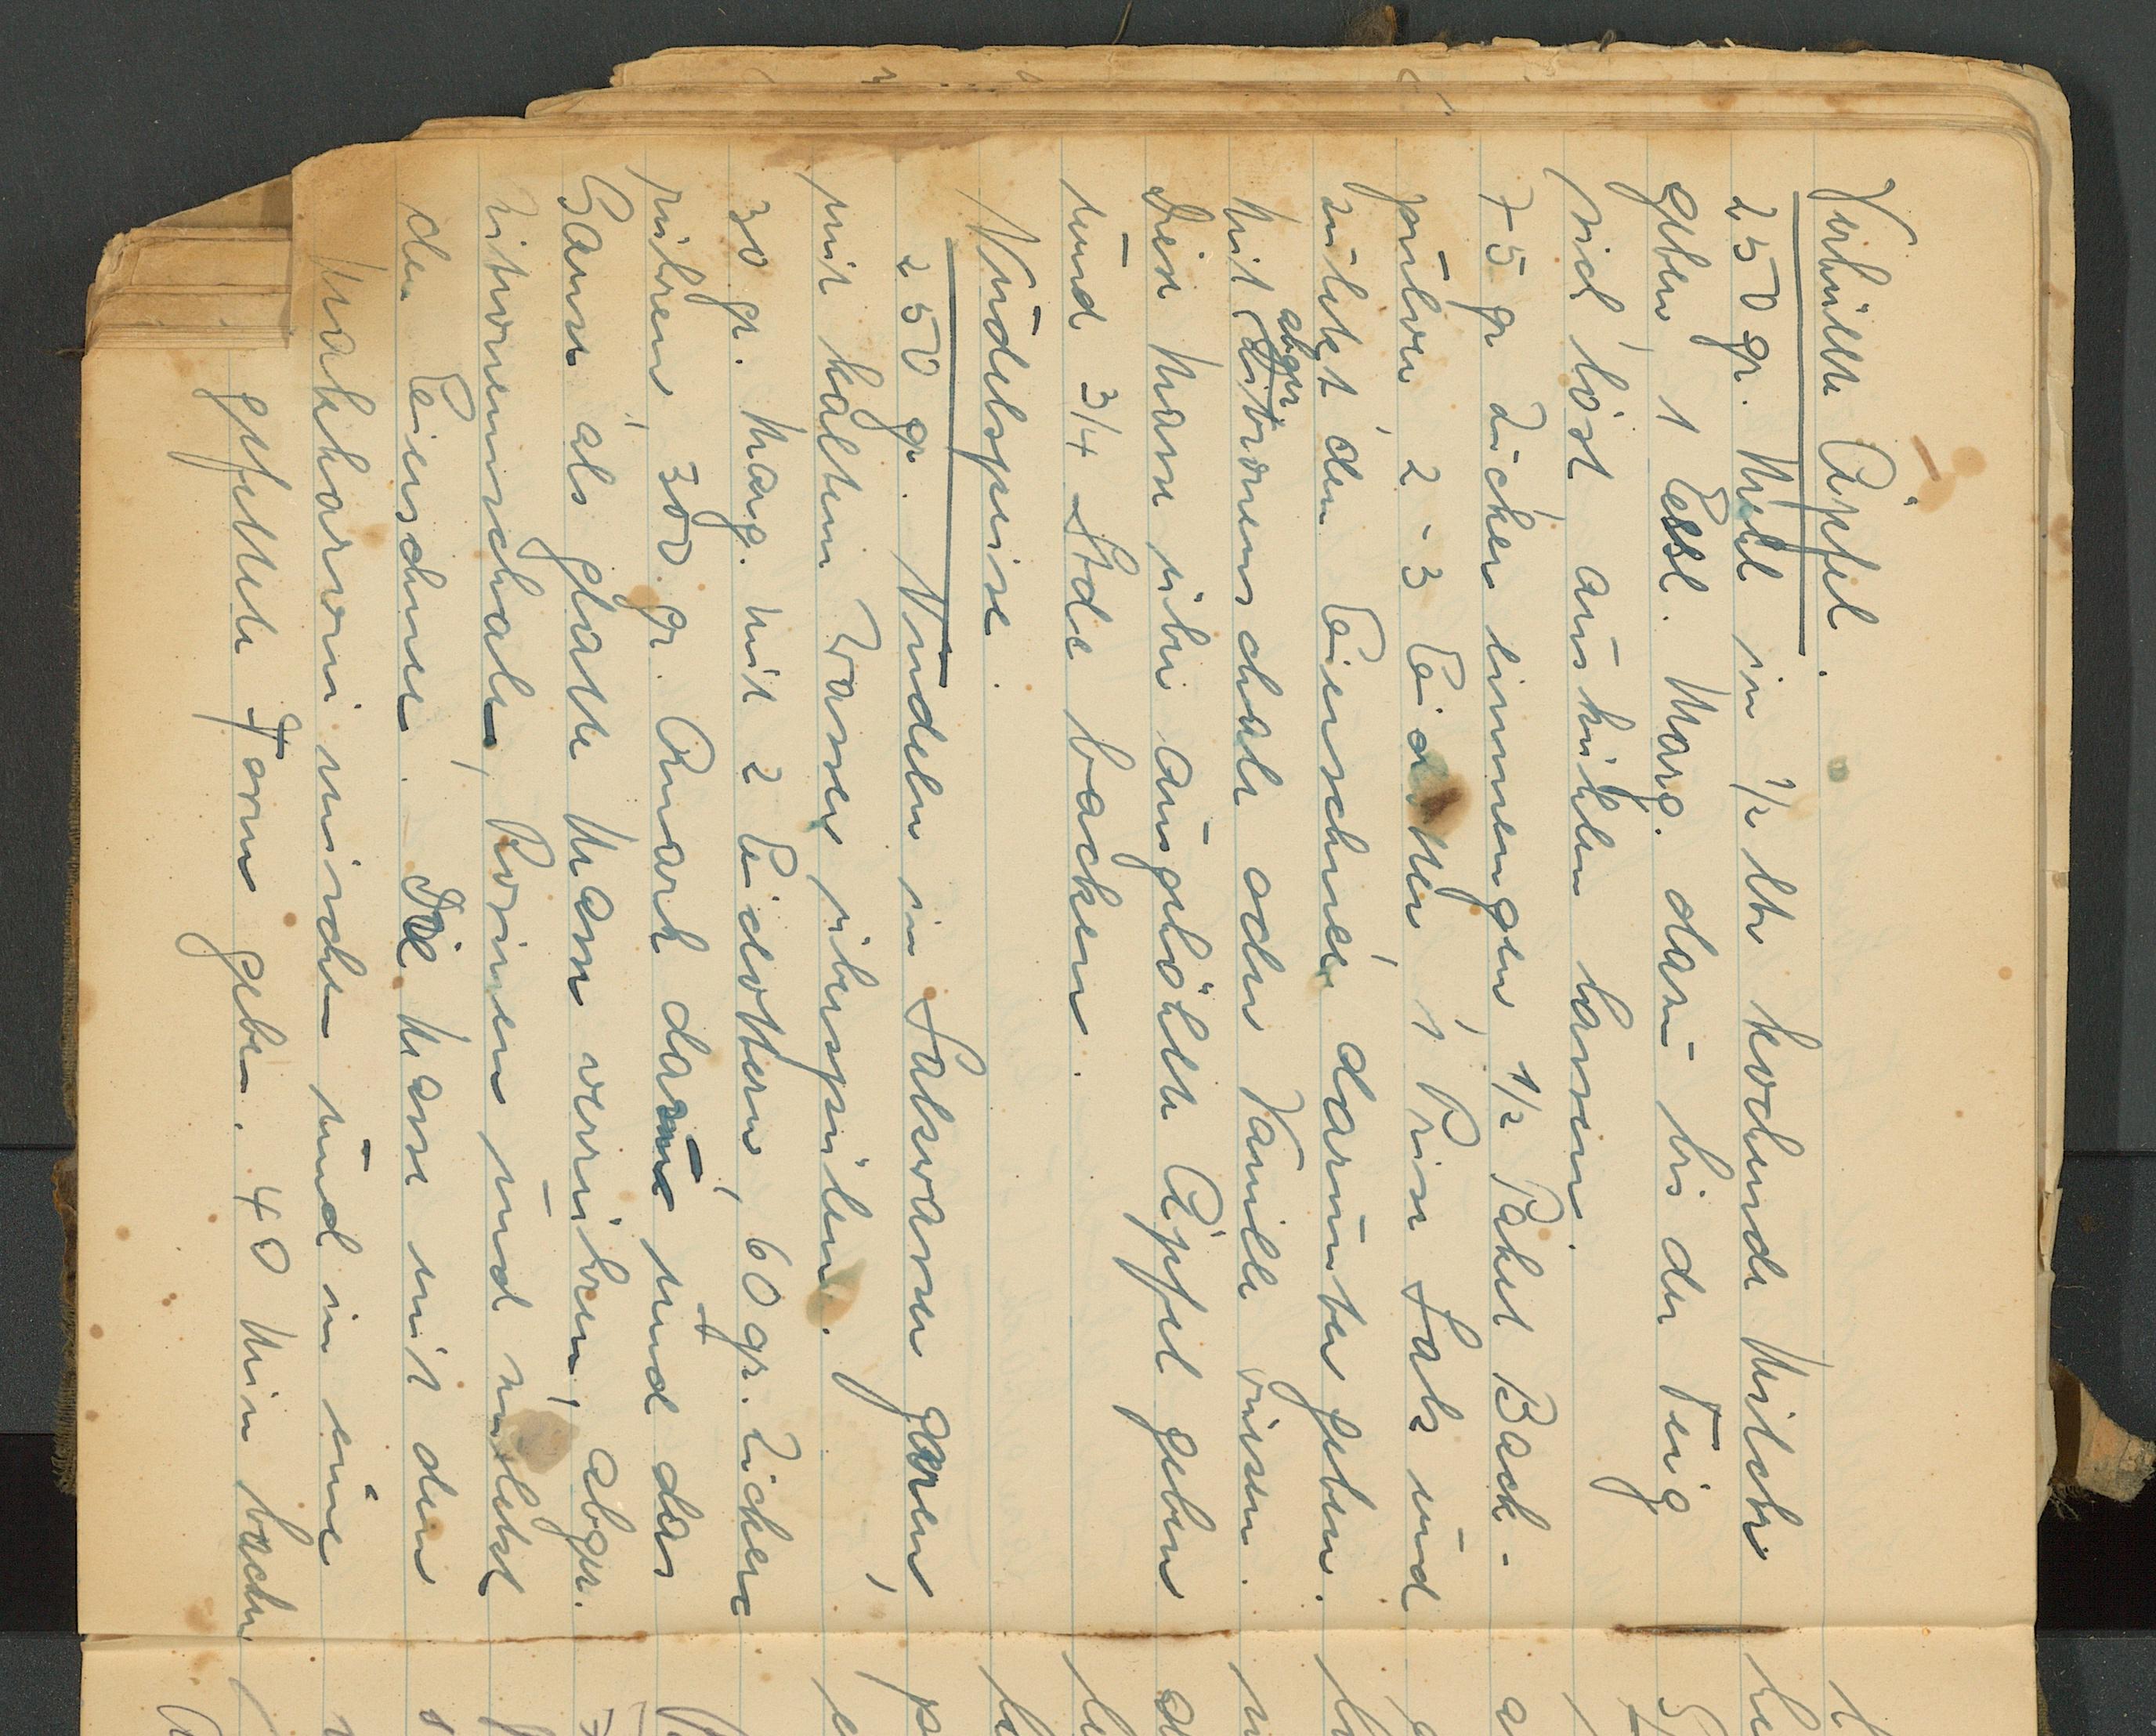 Verhüllte Äpfel.
250 gr. Mehl in ½ ltr kochende Milch
geben, 1 Essl. Marg. dazu bis der Teig
sich löst auskühlen lassen.
75 gr Zucker linnmengen 1/2 Paket Back-
pulver 2-3 Eidotter, 1 Prise Salz und
zuletzt den Eierschnee darunter geben.
Mit abger Zitronenschale oder Vanille würzen.
Diese Masse über ausgehöhlte Äpfel geben
und 3/4 Stde backen.
Nudelspeise.
250 gr. Nudeln in Salzwasser garen,
mit kaltem Wasser überspülen.
30 gr. Marg. mit 2 Eidottern, 60 gr. Zucker
rühren, 300 gr. Quark dazu und das
Ganze als glatte Masse verrühren, abger.
Zitronenschale, Rosinen und zuletzt
den Eierschnee. Die Masse mit den
Makkaroni mischen und in eine
gefettete Form geben. 40 Min backen